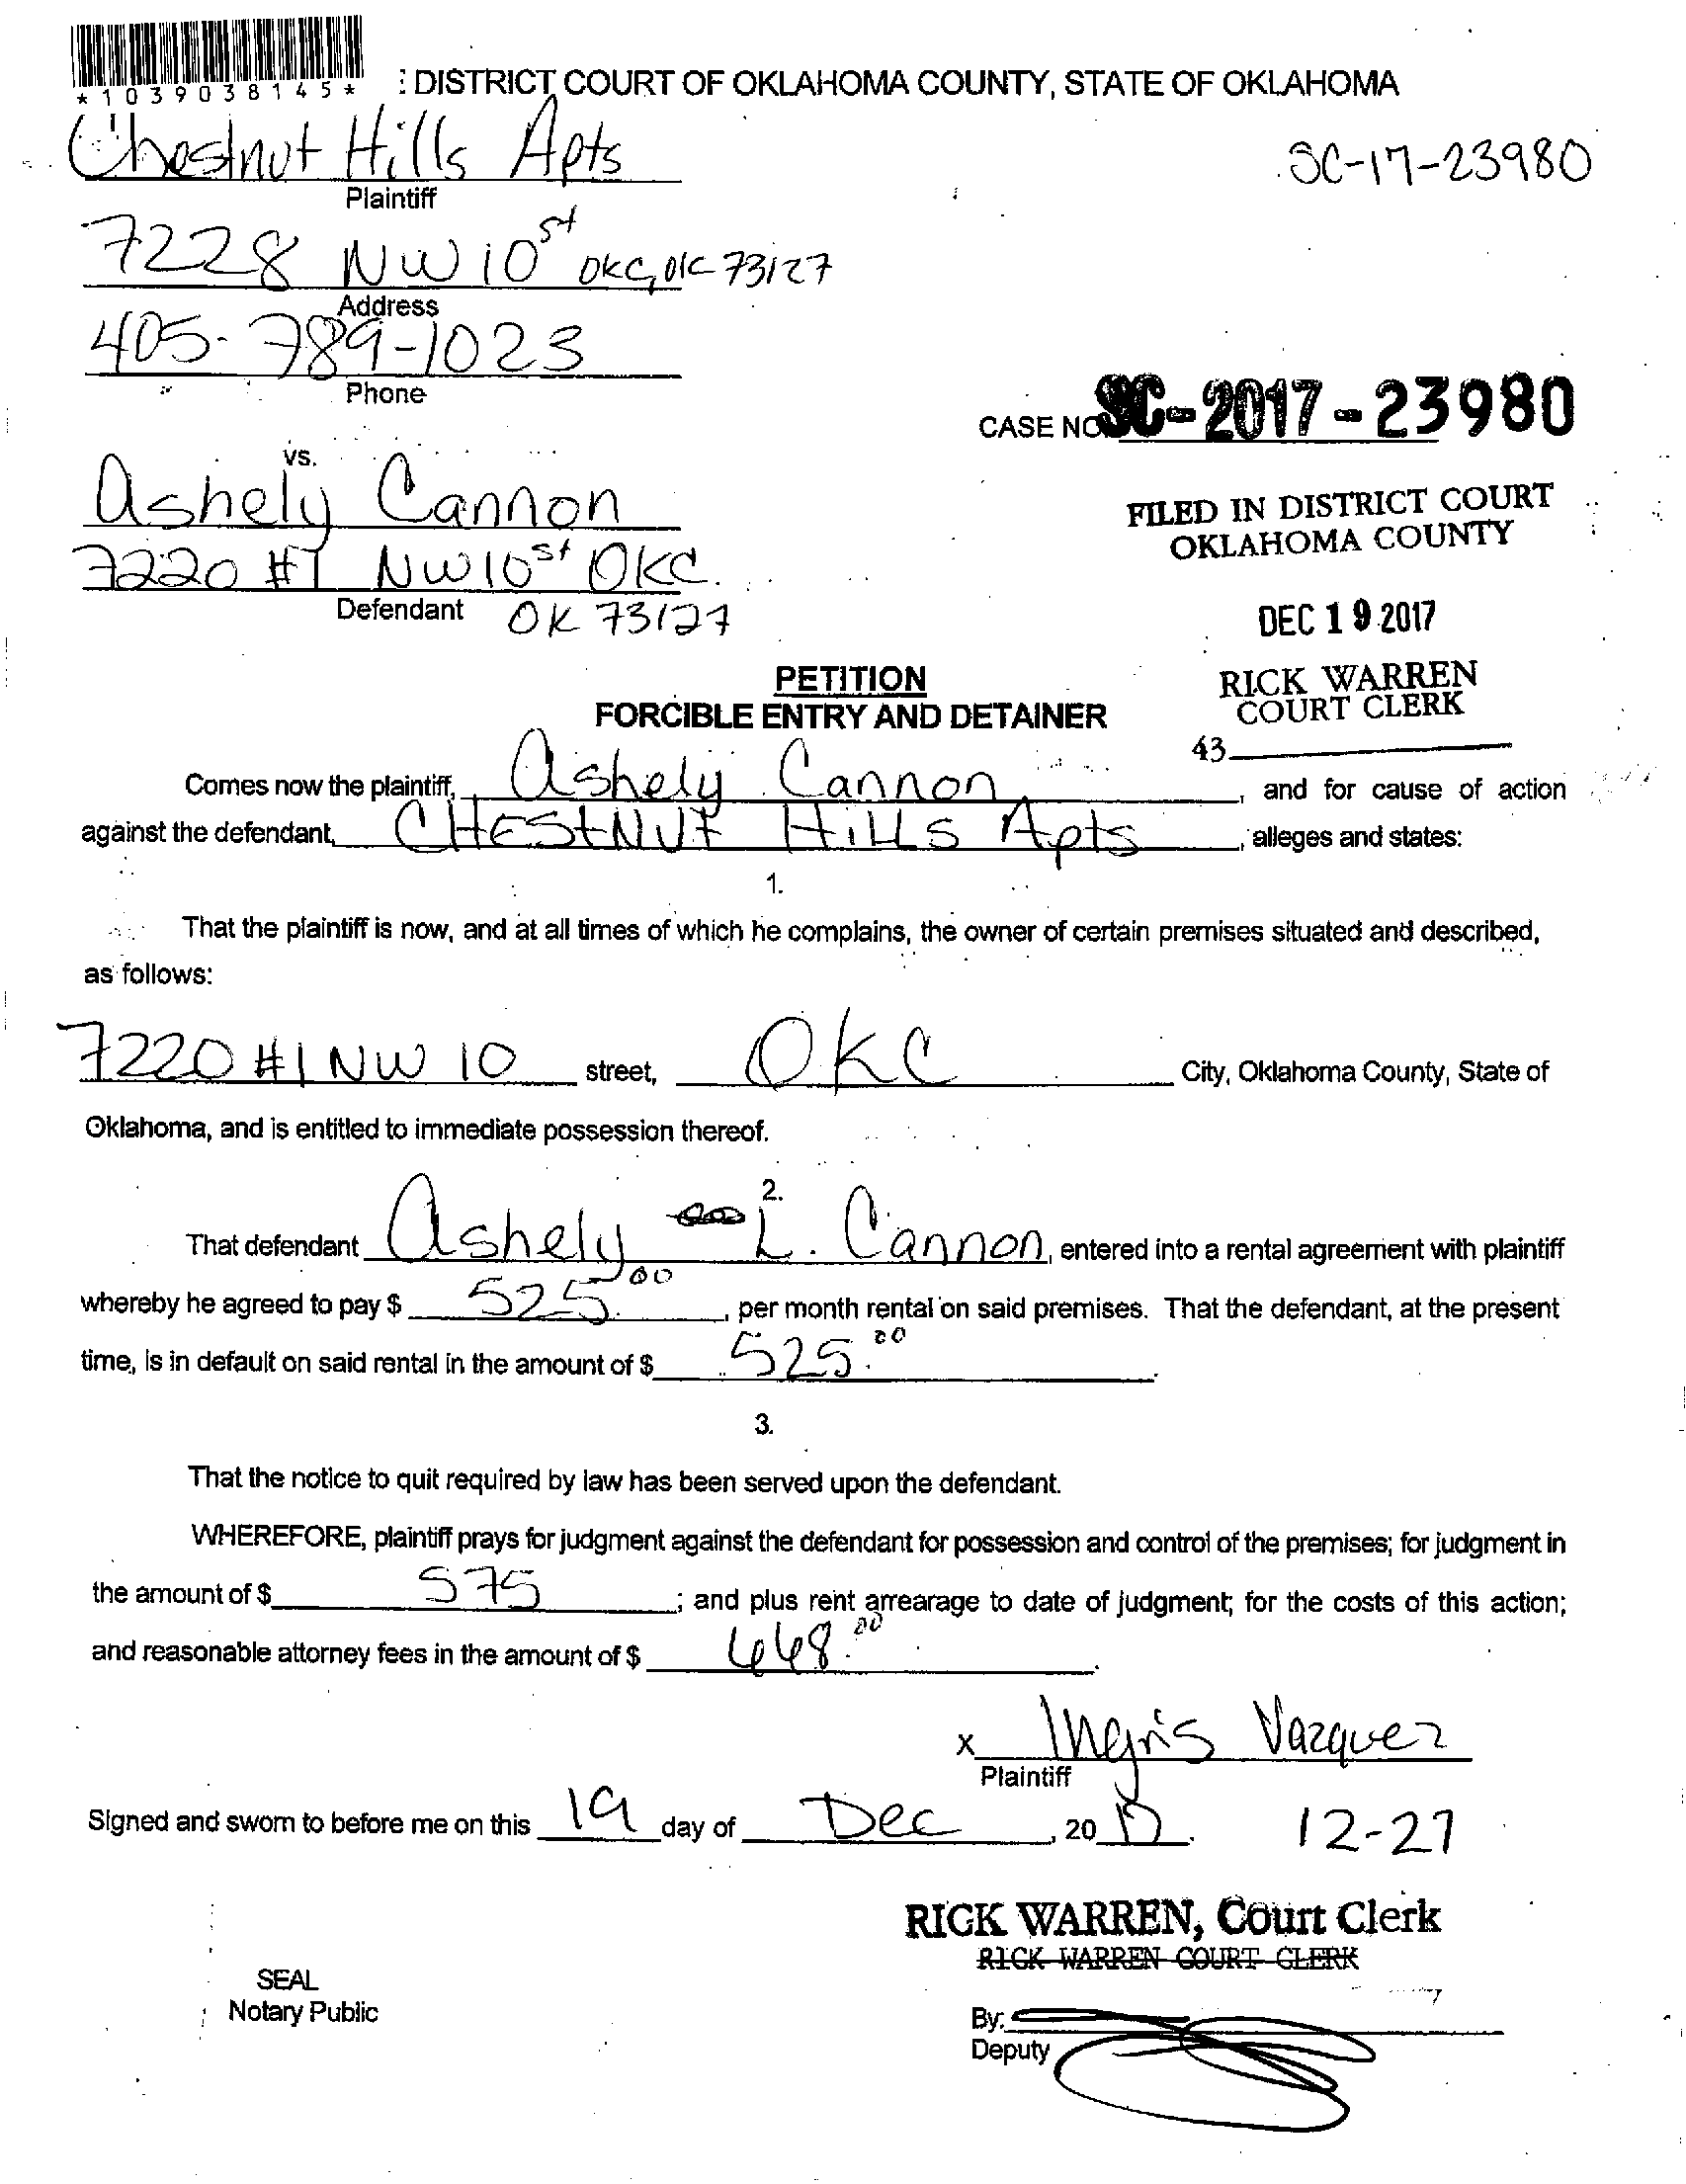 *1039038145*
: DISTRICT COURT OF OKLAHOMA COUNTY, STATE OF OKLAHOMA
Chestnut Hills Apts
SC-17-23980
Plaintiff
7228 NW 10 st OKC, OK 73127
Address
405-789-1023
Phone
CASE NO. SC-2017-23980
vs.
Ashely Cannon
FILED IN DISTRICT COURT
OKLAHOMA COUNTY
7220 #1 NW 10 st OKC.
Defendant OK 73127
DEC 19 2017
PETITION
FORCIBLE ENTRY AND DETAINER
RICK WARREN
COURT CLERK
43
Comes now the plaintiff, Ashely Cannon, and for cause of action
against the defendant, CHEStNUt HiLLS Apts, alleges and states:
1.
That the plaintiff is now, and at all times of which he complains, the owner of certain premises situated and described,
as follows:
7220 #1 NW 10 street, OKC City, Oklahoma County, State of
Oklahoma, and is entitled to immediate possession thereof.
2.
That defendant Ashely L. Cannon, entered into a rental agreement with plaintiff
whereby he agreed to pay $ 525.00, per month rental on said premises. That the defendant, at the present
time, is in default on said rental in the amount of $ 525.00.
3.
That the notice to quit required by law has been served upon the defendant.
WHEREFORE, plaintiff prays for judgment against the defendant for possession and control of the premises; for judgment in
the amount of $ 575; and plus rent arrearage to date of judgment; for the costs of this action;
and reasonable attorney fees in the amount of $ 648.00.
x Ingris Vazquez
Plaintiff
Signed and sworn to before me on this 19 day of Dec, 2017. 12-27
RICK WARREN, Court Clerk
RICK WARREN COURT CLERK
SEAL
Notary Public
By:
Deputy